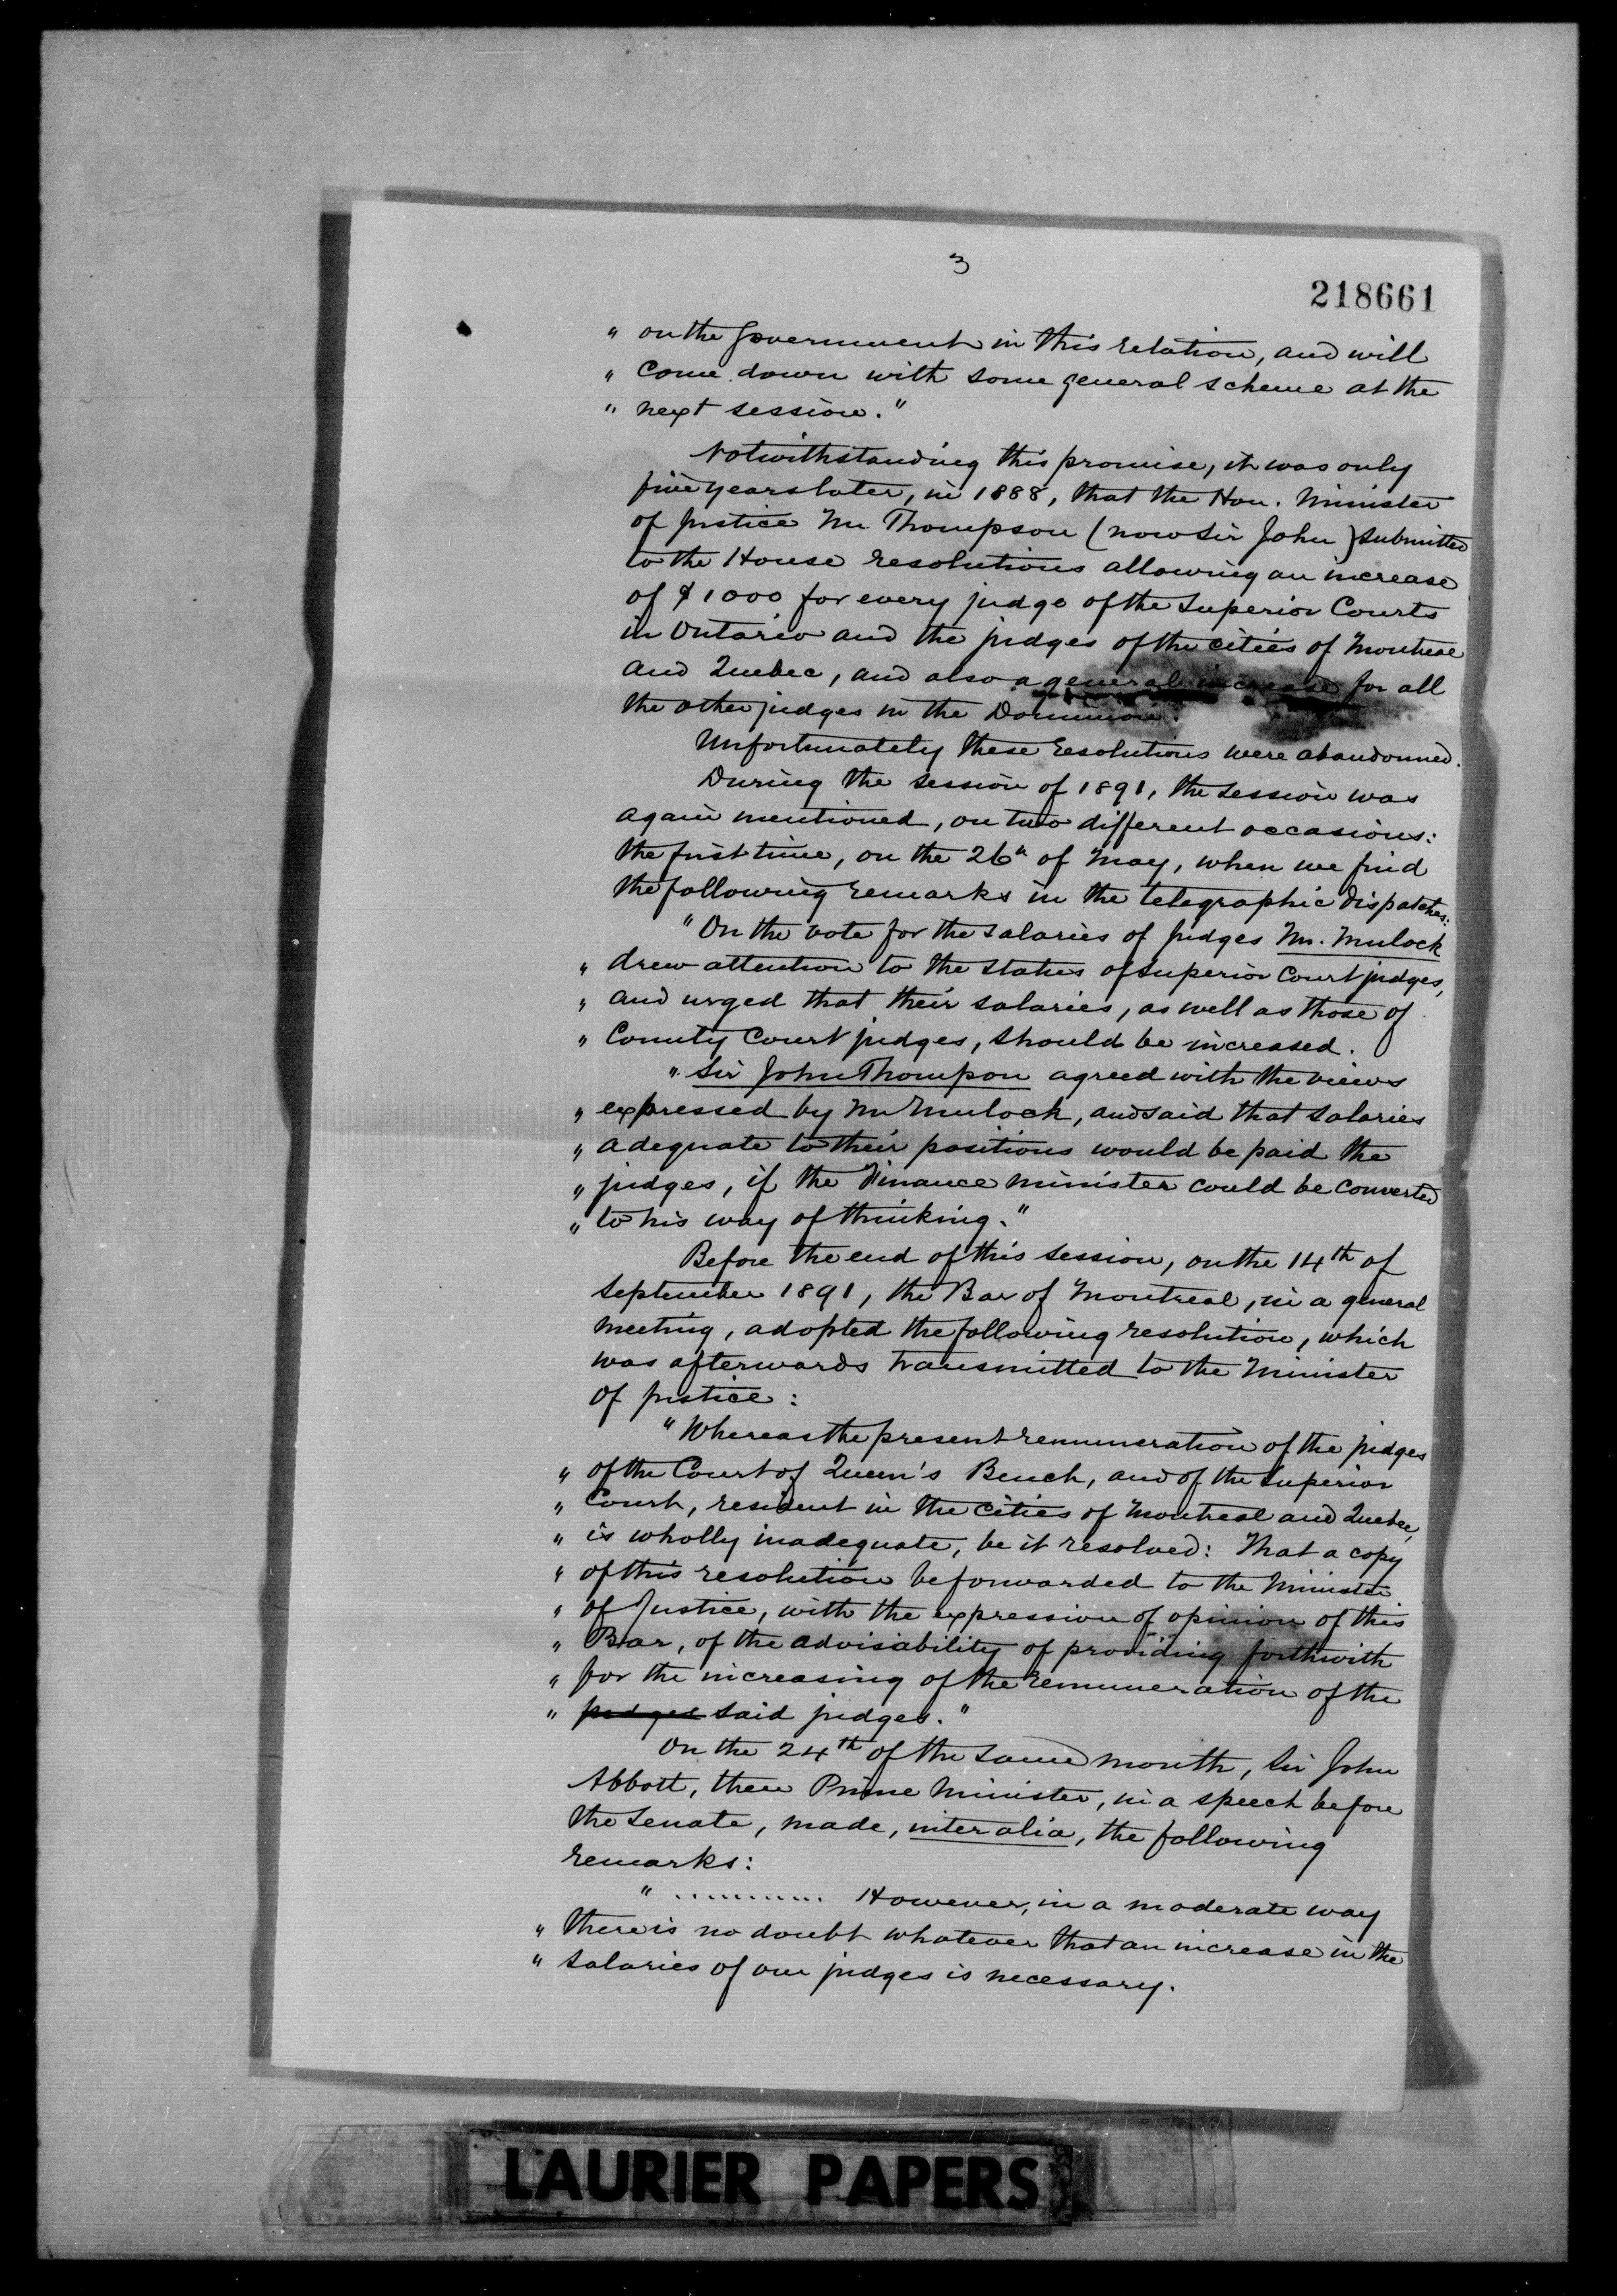 3
218661
" on the Government in this relation, and will
" come down with some general scheme at the
" next session."
Notwithstanding this promise, it was only
five years later, in 1888, that the Hon. Minister
of justice Mr Thompson (now Sir John) submitted
to the House resolutions allowing an increase
of $1000 for every judge of the Superior Courts
in Ontario and the judges of the cities of Montreal
and Quebec, and also a general increase for all
the other judges in the Dominion.
Unfortunately these resolutions were abandonned.
During the session of 1891, the session was
again mentioned, on two different occasions:
the first time, on the 26th of May, when we find
the following remarks in the telegraphic dispatches:
"On the vote for the salaries of judges Mr. Mulock
" drew attention to the status of Superior Court judges,
" and urged that their salaries, as well as those of
" County Court judges, should be increased.
" Sir John Thompson agreed with the views
" expressed by Mr Mulock, and said that salaries
" adequate to their positions would be paid the
" judges, if the Finance minister could be converted
" to his way of thinking."
Before the end of this session, on the 14th of
September 1891, the Bar of Montreal, in a general
meeting, adopted the following resolution, which
was afterwards transmitted to the Minister
of justice:
"Whereas the present remuneration of the judges
" of the Court of Queen's Bench, and of the Superior
" Court, resident in the cities of Montreal and Quebec,
" is wholly inadequate, be it resolved: That a copy
" of this resolution be forwarded to the Minister
" of Justice, with the expression of opinion of this
" Bar, of the advisability of providing forthwith
" for the increasing of the remuneration of the
" judges said judges."
On the 24th of the same month, Sir John
Abbott, then Prime Minister, in a speech before
the Senate, made, inter alia, the following
remarks:
" ............ However, in a moderate way
" there is no doubt whatever that an increase in the
" salaries of our judges is necessary.
LAURIER PAPERS